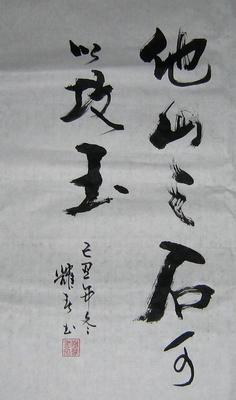 他山之石可
以攻玉
己丑年冬
耀 书